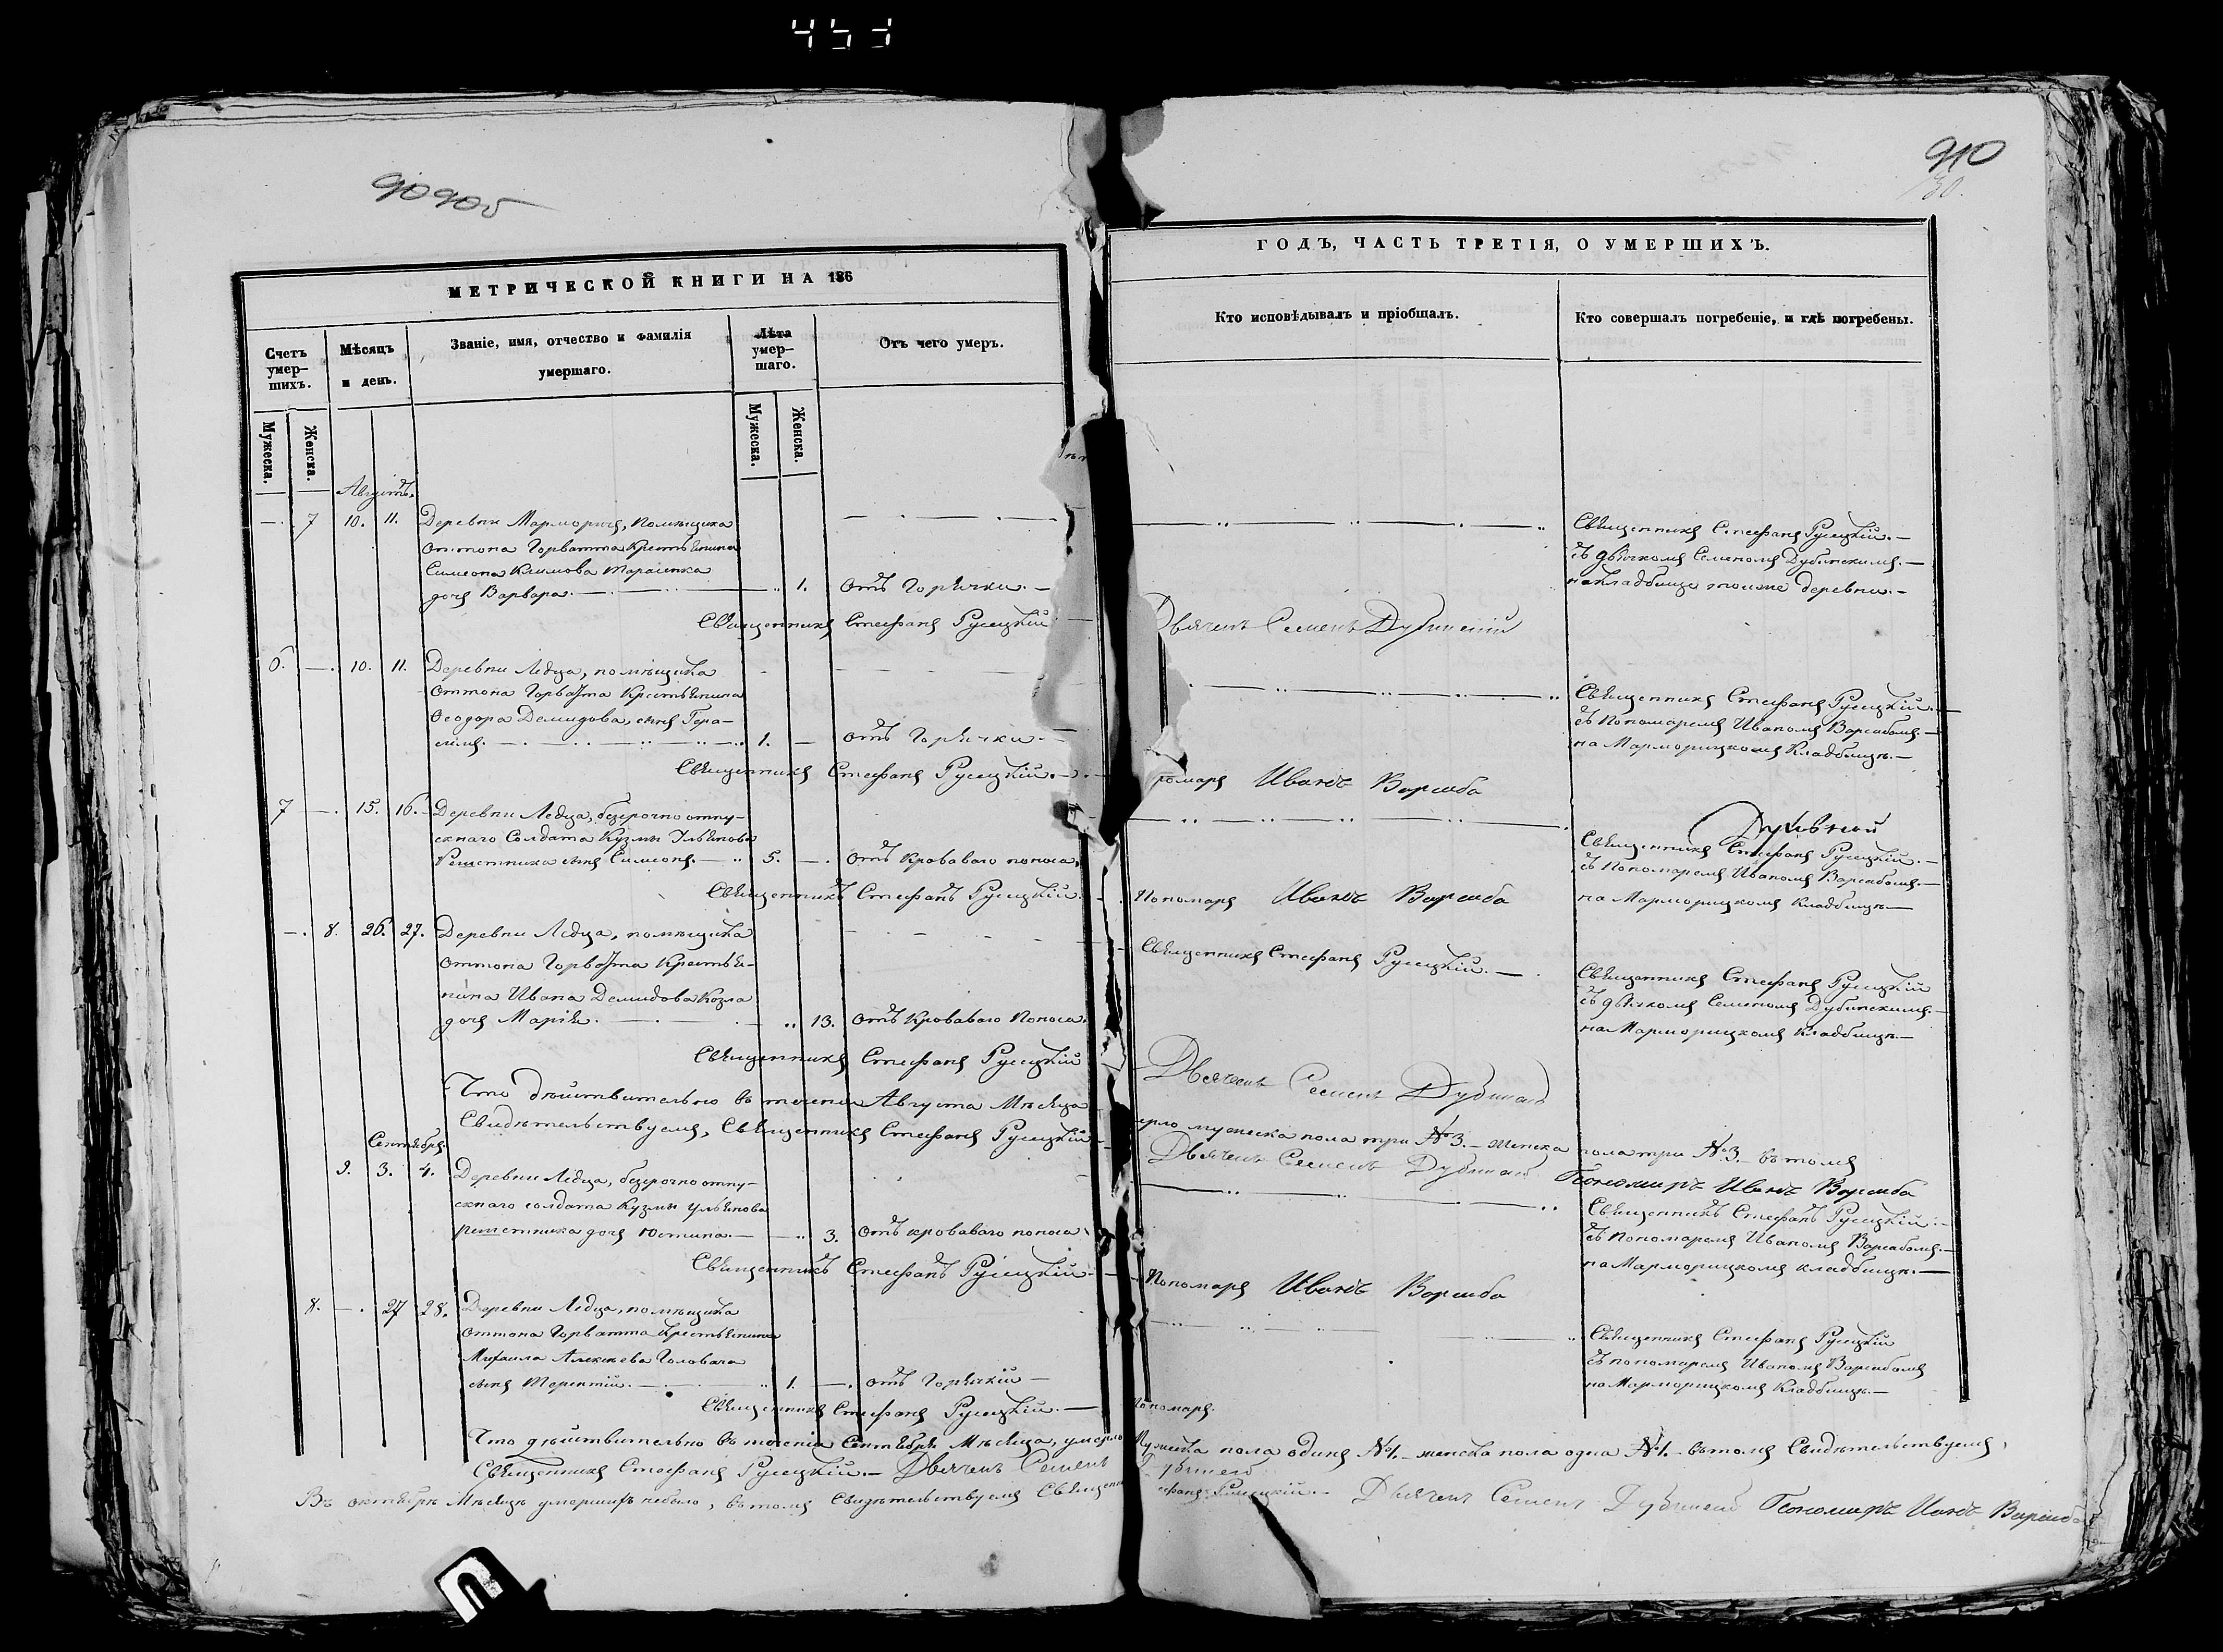 909об
910
130.
МЕТРИЧЕСКОЙ КНИГИ НА 186
ГОДЪ, ЧАСТЬ ТРЕТІЯ, О УМЕРШИХЪ.
Счетъ умер-
шихъ.
Мѣсяцъ
и день.
Званіе, имя, отчество и фамилія
умершаго.
Лѣта
умер-
шаго.
Отъ чего умеръ.
Кто исповѣдывалъ и пріобщалъ.
Кто совершалъ погребеніе, и гдѣ погребены.
Мужеска.
Женска.
Мужеска.
Женска.
Августъ.
— 7 10. 11. Деревни Марморичъ, помѣщика
Оттона Горватта крестьянина
Симеона Климова Тарасенка
дочь Варвара. — 1. Отъ Горячки. —
Священникъ Стефанъ Русецкій. —
съ дьячкомъ Семеномъ Дубинскимъ. —
на кладбище тоиже деревни. —
Священникъ Стефанъ Русецкій
Двячекъ Семенъ Дубинскій
6. — 10. 11. Деревни Ледца, помѣщика
Оттона Горватта крестьянина
Ѳеодора Демидова, сынъ Гера-
симъ. — 1. — Отъ Горячки. —
Священникъ Стефанъ Русецкій. —
съ Пономаремъ Иваномъ Варсабомъ. —
на Марморицкомъ Кладбищѣ. —
Священникъ Стефанъ Русецкій. —
номарь Иванъ Варсаба
7 — 15. 16. Деревни Ледца, безсрочно отпу-
скнаго Солдата Кузмы Ульянова
Решетника сынъ Симеонъ. — 5. — Отъ Кроваваго поноса.
Священникъ Стефанъ Русецкій. —
съ Пономаремъ Иваномъ Варсабомъ. —
на Марморицкомъ Кладбищѣ —
Священникъ Стефанъ Русецкій. —
Пономарь Иванъ Варсаба
— 8. 26. 27. Деревни Ледца, помѣщика
Оттона Горватта Крестья-
нина Ивана Демидова Козла
дочь Марія. — 13. Отъ Кроваваго Поноса.
Священникъ Стефанъ Русецкій. —
Священникъ Стефанъ Русецкій
съ дьячкомъ Семеномъ Дубинскимъ. —
на Марморицкомъ Кладбищѣ. —
Священникъ Стефанъ Русецкій
Двячекъ Семенъ
Что дѣйствительно въ теченіи Августа Мѣсяца
ерло мужеска пола три № 3. — женска пола три № 3. въ томъ
Свидѣтельствуемъ, Священникъ Стефанъ Русецкій —
Двячекъ Семенъ Пономарь Иванъ Варсаба
Сентябрь.
9. 3. 4. Деревни Ледца, безсрочно отпу-
скнаго солдата Кузмы Ульянова
решетника дочь Юстина. — 3. Отъ кроваваго поноса.
Священникъ Стефанъ Русецкій. —
съ Пономаремъ Иваномъ Варсабомъ. —
на Марморицкомъ кладбищѣ. —
Священникъ Стефанъ Русецкій. —
Пономарь Иванъ Варсаба
8. — 27 28. Деревни Ледца, помѣщика
Оттона Горватта крестьянина
Михаила Алексѣева Головача
сынъ Терентій. — 1. — Отъ Горячкій —
Священникъ Стефанъ Русецкій
съ пономаремъ Иваномъ Варсабомъ
на Марморицкомъ Кладбищѣ. —
Священникъ Стефанъ Русецкій. —
Пономарь.
Что дѣйствительно въ теченіи Сентября Мѣсяца, умерло Мужеска пола одинъ № 1. — женска пола одна № 1. — въ томъ Свидѣтельствуемъ,
Священникъ Стефанъ Русецкій. — Двячекъ Семенъ
Въ октябрѣ Мѣсяцѣ умершихъ небыло, въ томъ Свидѣтельствуемъ Священникъ Стефанъ Русецкій. — Двячекъ Семенъ Пономарь Иванъ Варсаба